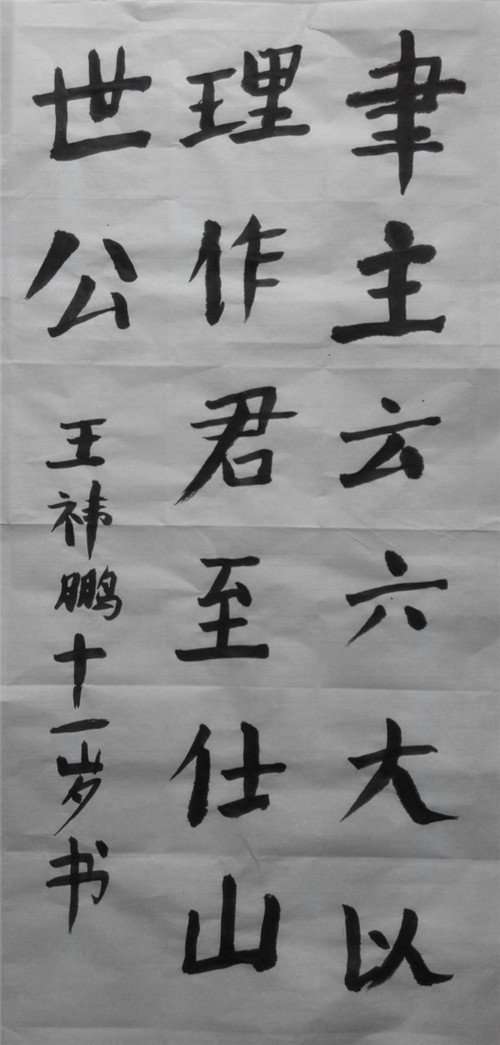 聿主云六大以
理作君至仕山
世公
王祎鹏十一岁书